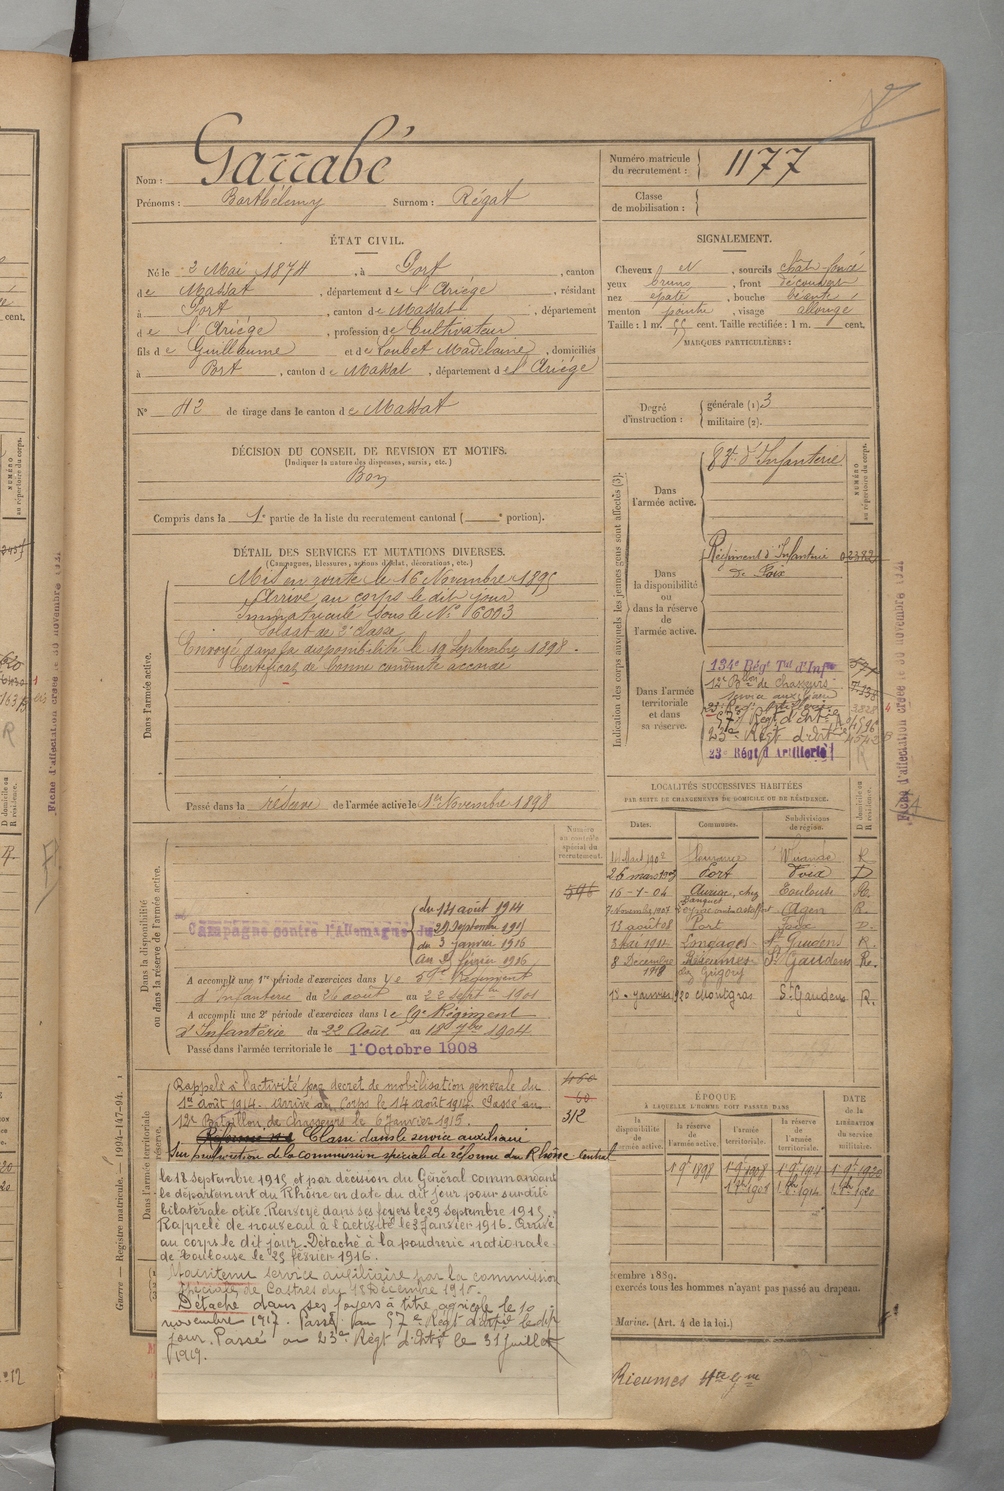 Nom : Garrabé
Prénoms : Barthélemy Surnom : Régat
Numéro matricule du recrutement : 1177
Classe de mobilisation :
ÉTAT CIVIL.
Né le 2 Mai 1874, à Port, canton
de Massat, département de l'Ariège, résidant
à Port, canton de Massat, département
de l'Ariège, profession de Cultivateur
fils de Guillaume et de Loubet Madelaine, domiciliés
à Port, canton de Massat, département de l'Ariège
N° 42 de tirage dans le canton de Massat
SIGNALEMENT.
Cheveux et sourcils chât. foncé
yeux bruns, front découvert
nez épaté, bouche
menton pointu, visage allongé
Taille : 1 m. 55 cent. Taille rectifiée : 1 m. cent.
MARQUES PARTICULIÈRES :
Degré d'instruction : générale (1) 3
militaire (2).
DÉCISION DU CONSEIL DE REVISION ET MOTIFS.
(Indiquer la nature des dispenses, sursis, etc.)
Bon
Compris dans la 1e partie de la liste du recrutement cantonal ( e portion).
DÉTAIL DES SERVICES ET MUTATIONS DIVERSES.
(Campagnes, blessures, actions d'éclat, décorations, etc.)
Dans l'armée active.
Mis en route le 16 Novembre 1895
Arrivé au corps le dit jour
Immatriculé sous le N° 6003
Soldat de 2e classe
Envoyé dans la disponibilité le 19 Septembre 1898.
Certificat de bonne conduite accordé
Passé dans la réserve de l'armée active le 1er Novembre 1898
Indication des corps auxquels les jeunes gens sont affectés (3).
NUMÉRO au répertoire du corps.
Dans l'armée active.
d'Infanterie
Dans la disponibilité ou dans la réserve de l'armée active.
Régiment d'Infanterie 02382
de Foix
Dans l'armée territoriale et dans sa réserve.
134e Régt Tal d'Infie
12e Bon de Chasseurs
service auxiliaire
57e Régt d'Artie
23e Régt d'Artie
23e Régt d'Artillerie
Fiche d'affectation créée le 30 novembre 1921
LOCALITÉS SUCCESSIVES HABITÉES
PAR SUITE DE CHANGEMENTS DE DOMICILE OU DE RÉSIDENCE.
Dates. Communes. Subdivisions de région. D domicile ou R résidence.
26 mars 1903 Port Foix D
16-1-04 Auriac, chez Toulouse R.
7 Novembre 1907 Agen R.
13 août 08 Port Foix D.
3 mai 1912 Longages St Gaudens R.
8 Décembre 1919 Rieumes chez Grégory St Gaudens R.
13 janvier 1920 Montgras St Gaudens R.
Dans la disponibilité ou dans la réserve de l'armée active.
Numéro au contrôle spécial du recrutement.
595
Campagne contre l'Allemagne
du 14 août 1914
au 29 Septembre 1915
du 3 janvier 1916
au 25 février 1916
A accompli une 1re période d'exercices dans le 59e Régiment
d'Infanterie du 26 août au 22 septbre 1901
A accompli une 2e période d'exercices dans le 59e Régiment
d'Infanterie du 22 Août au 18 7bre 1904
Passé dans l'armée territoriale le 1er Octobre 1908
Dans l'armée territoriale
réserve.
Rappelé à l'activité par décret de mobilisation générale du
1er août 1914. Arrivé au Corps le 14 août 1914. Passé au
12e Bataillon de Chasseurs le 6 Janvier 1915.
312
Classé dans le service auxiliaire
Sur proposition de la commission spéciale de réforme du Rhône Central
le 18 septembre 1915 et par décision du Général commandant
le département du Rhône en date du dit jour pour surdité
bilatérale otite Renvoyé dans ses foyers le 29 septembre 1915.
Rappelé de nouveau à l'activité le 3 Janvier 1916. Arrivé
au corps le dit jour. Détaché à la poudrerie nationale
de Toulouse le 25 février 1916.
Maintenu service auxiliaire par la commission
spéciale de Castres du 18 Décembre 1916.
Détaché dans ses foyers à titre agricole le 10
novembre 1917. Passé au 57e Régt d'artie le dit
jour. Passé au 23e Régt d'Artie le 31 Juillet
1919.
ÉPOQUE
À LAQUELLE L'HOMME DOIT PASSER DANS
la disponibilité de l'armée active. la réserve de l'armée active. l'armée territoriale. la réserve de l'armée territoriale.
DATE de la LIBÉRATION du service militaire.
1 9bre 1898 1 9bre 1908 1 9bre 1914 1 9bre 1920
1 8bre 1908 1 8bre 1914 1 8bre 1920
décembre 1889.
exercés tous les hommes n'ayant pas passé au drapeau.
Marine. (Art. 4 de la loi.)
Rieumes Hte Gne
Guerre — Registre matricule. — 1904-147-94.